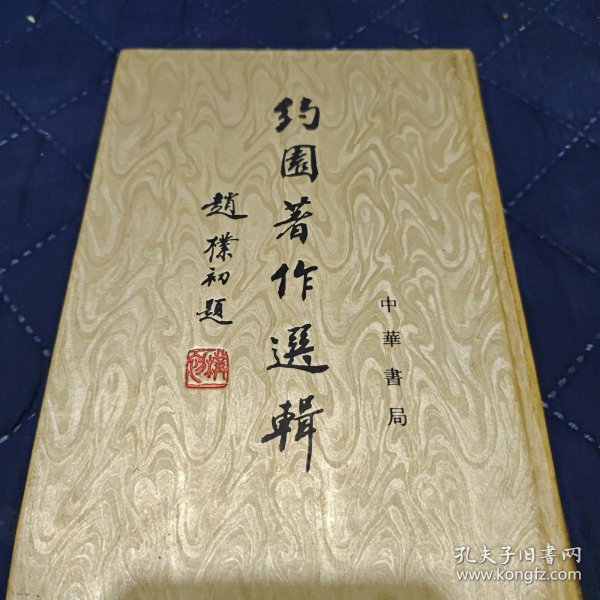 約園著作選輯
趙樸初題
中華書局
孔夫子旧书网
www.kongfz.com